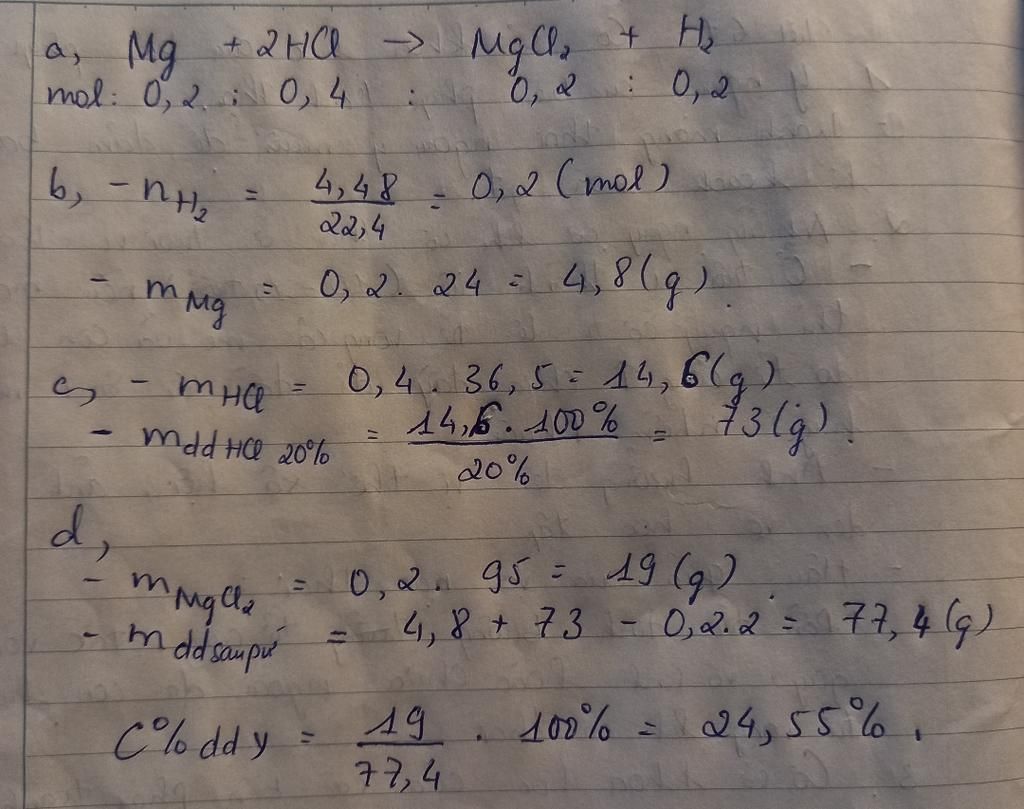 a, Mg + 2HCl → MgCl₂ + H₂
mol: 0,2 : 0,4 : 0,2 : 0,2
b, - n_H₂ = 4,48/22,4 = 0,2 (mol)
- m_Mg = 0,2. 24 = 4,8 (g).
c, - m_HCl = 0,4 . 36,5 = 14,6 (g)
- m_dd HCl 20% = 14,6 . 100%/20% = 73 (g).
d,
- m_MgCl₂ = 0,2. 95 = 19 (g).
- m_dd sau pứ = 4,8 + 73 - 0,2.2 = 77,4 (g)
C% dd y = 19/77,4 . 100% = 24,55%.